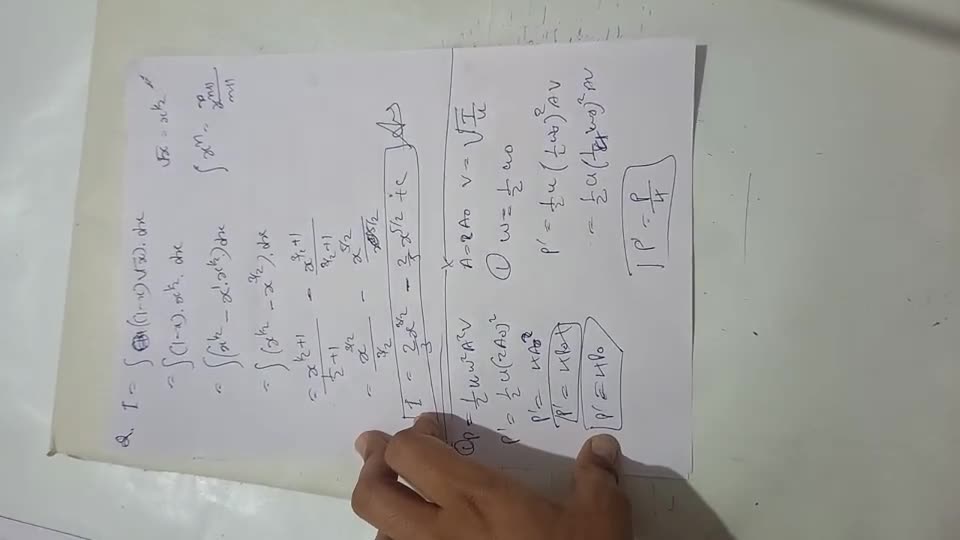 Q. I = ∫(1-x)√x). dx
√x = x^1/2
= ∫(1-x). x^1/2. dx
∫x^n = x^n+1/n+1
= ∫(x^1/2 - x^1. x^1/2) dx
= ∫(x^1/2 - x^3/2). dx
= x^1/2+1/1/2+1 - x^3/2+1/3/2+1
= x^3/2/3/2 - x^5/2/5/2
I = 2/3 x^3/2 - 2/5 x^5/2 + c Ans
P = 1/2 u w^2 A^2 V
A = 2A0 V = √T/u
P' = 1/2 u (2A0)^2
① w = 1/2 w0
P' = 4A0^2
P' = 1/2 u (1/2 w0)^2 AV
P' = 4P0
= 1/2 u (1/4 w0)^2 AV
P' = 4P0
P' = P/4